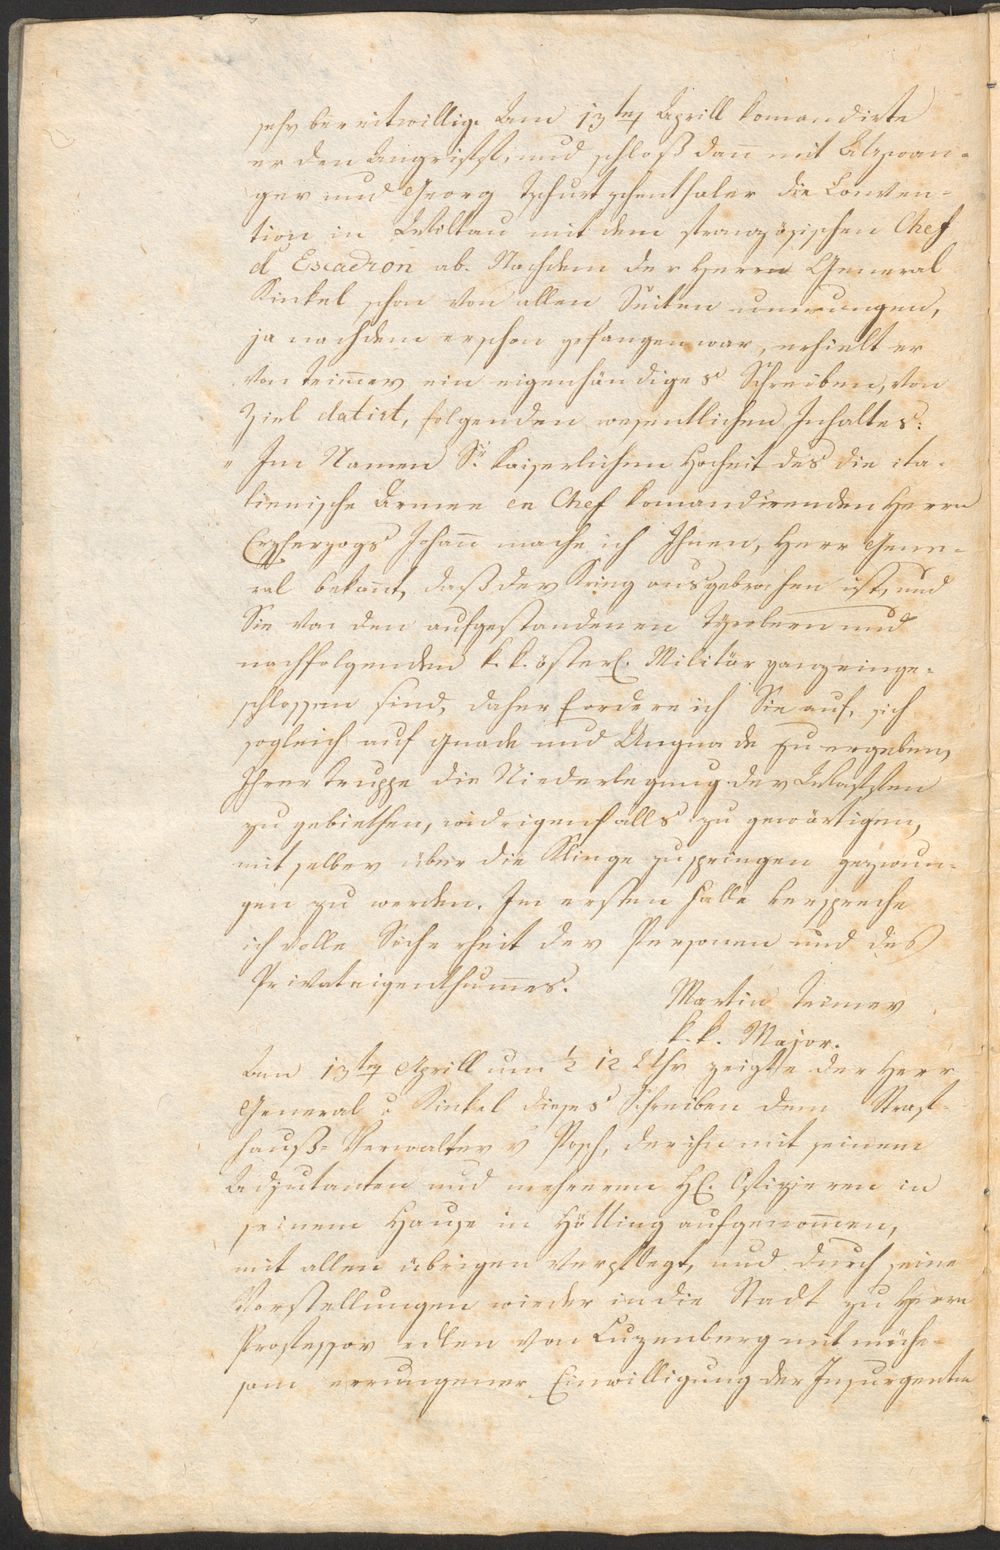 sehr bereitwillig. Am 13ten Aprill komandirte
er den Angriffst, und schloß dan̄ mit Atzwan-
ger und Georg Tschurtschenthaler die Conven-
tion in Wiltau mit dem französischen Chef
d' Escadron ab. Nachdem der Herr General
Kinkel schon von allen Seiten umrungen,
ja nachdem er schon gefangen war, erhielt er
von Teim̄er ein eigenhändiges Schreiben, von
Zirl datirt, folgenden wesentlichen Inhaltes:
„ Im Namen Sr. kaiserlichen Hocheit des die ita-
lienische Armee en Chef komandirenden Herrn
Erzherzogs Johan̄ mache ich Ihnen, Herr Gene-
ral bekan̄t, daß der Krieg ausgebrochen ist, und
Sie von den aufgestandenen Tyrolern und
nachfolgenden k. k. österl. Militär ganz einge-
schlossen sind, daher fordere ich Sie auf, sich
sogleich auf Gnade und Ungnade zu ergeben,
Ihrer Truppe die Niederlegung der Waffen
zu gebiethen, widrigenfalls zu gewärtigen,
mit selber über die Klinge zu springen gezwun-
gen zu werden. Im ersten Falle verspreche
ich volle Sicherheit der Personen und des
Privateigenthum̄es.
Martin Teimer
k. k. Major.
Den 13ten Aprill um ½ 12 Uhr zeigte der Herr
General v Kinkel dieses Schreiben dem Straf-
hauß-Verwalter v Posch, der ihn mit seinem
Adjutanten und mehreren H. Offizieren in
seinem Hause in Hötting aufgenom̄en,
mit allen übrigen verpflegt, und durch seine
Vorstellungen wieder in die Stadt zu Herrn
Professor edlen von Luzenburg mit müh-
sam errungener Einwilligung der Insurgenten